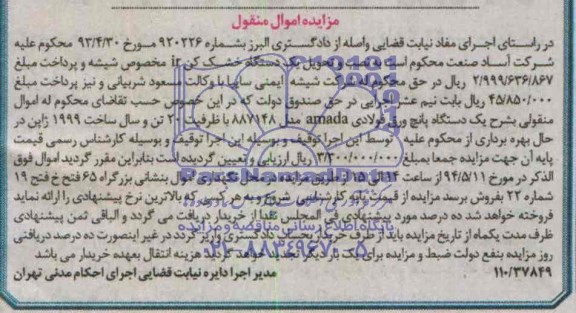 مزایده اموال منقول
در راستای اجرای مفاد نیابت قضایی واصله از دادگستری البرز بشماره ۹۲۰۲۲۶ مورخ ۹۳/۴/۳۰ محکوم علیه
شرکت آساد صنعت محکوم است به و تحویل یک دستگاه خشک کن ir مخصوص شیشه و پرداخت مبلغ
۲/۹۹۹/۶۳۶/۸۶۷ ریال در حق محکوم له شرکت شیشه ایمنی سایپا با وکالت مسعود شربیانی و نیز پرداخت مبلغ
۴۵/۸۵۰/۰۰۰ ریال بابت نیم عشر اجرایی در حق صندوق دولت که در این خصوص حسب تقاضای محکوم له اموال
منقولی بشرح یک دستگاه پانچ ورق فولادی amada مدل ۸۸۷۱۴۸ با ظرفیت ۲۰ تن و سال ساخت ۱۹۹۹ ژاپن در
حال بهره برداری از محکوم علیه توسط این اجرا توقیف و بوسیله این اجرا توقیف و بوسیله کارشناس رسمی قیمت
پایه آن جهت مزایده جمعا بمبلغ ۳/۳۰۰/۰۰۰/۰۰۰ ریال ارزیابی و تعیین گردیده است بنابراین مقرر گردید اموال فوق
الذکر در مورخ ۹۴/۵/۱۱ از ساعت ۱۴ الی ۱۵ از طریق مزایده در محل نگهداری اموال بنشانی بزرگراه ۶۵ فتح خ فتح ۱۹
شماره ۲۲ بفروش برسد مزایده از قیمت پایه کارشناسی شروع و به هر کسی که بالاترین نرخ پیشنهادی را ارائه نماید
فروخته خواهد شد ده درصد مورد پیشنهادی فی المجلس نقدا از خریدار دریافت می گردد و الباقی ثمن پیشنهادی
ظرف مدت یکماه از تاریخ مزایده باید از طرف خریدار بحساب دادگستری واریز گردد در غیر اینصورت ده درصد دریافتی
روز مزایده بنفع دولت ضبط و مزایده برای یک بار دیگر تجدید خواهد گردید هزینه انتقال بعهده خریدار می باشد
۱۱۰/۳۷۸۴۹ مدیر اجرا دایره نیابت قضایی اجرای احکام مدنی تهران
پایگاه اطلاع رسانی مناقصه و مزایده
۰۲۱-۸۸۳۴۹۶۷۰-۵